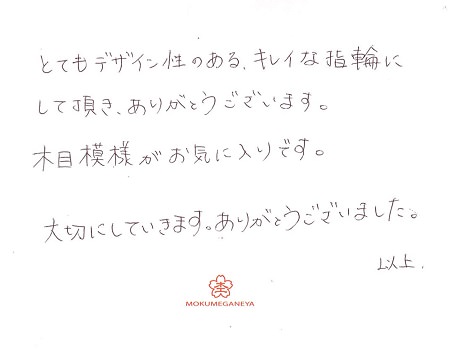 とてもデザイン性のある、キレイな指輪に
して頂き、ありがとうございます。
木目模様がお気に入りです。
大切にしていきます。ありがとうございました。
以上.
MOKUMEGANEYA